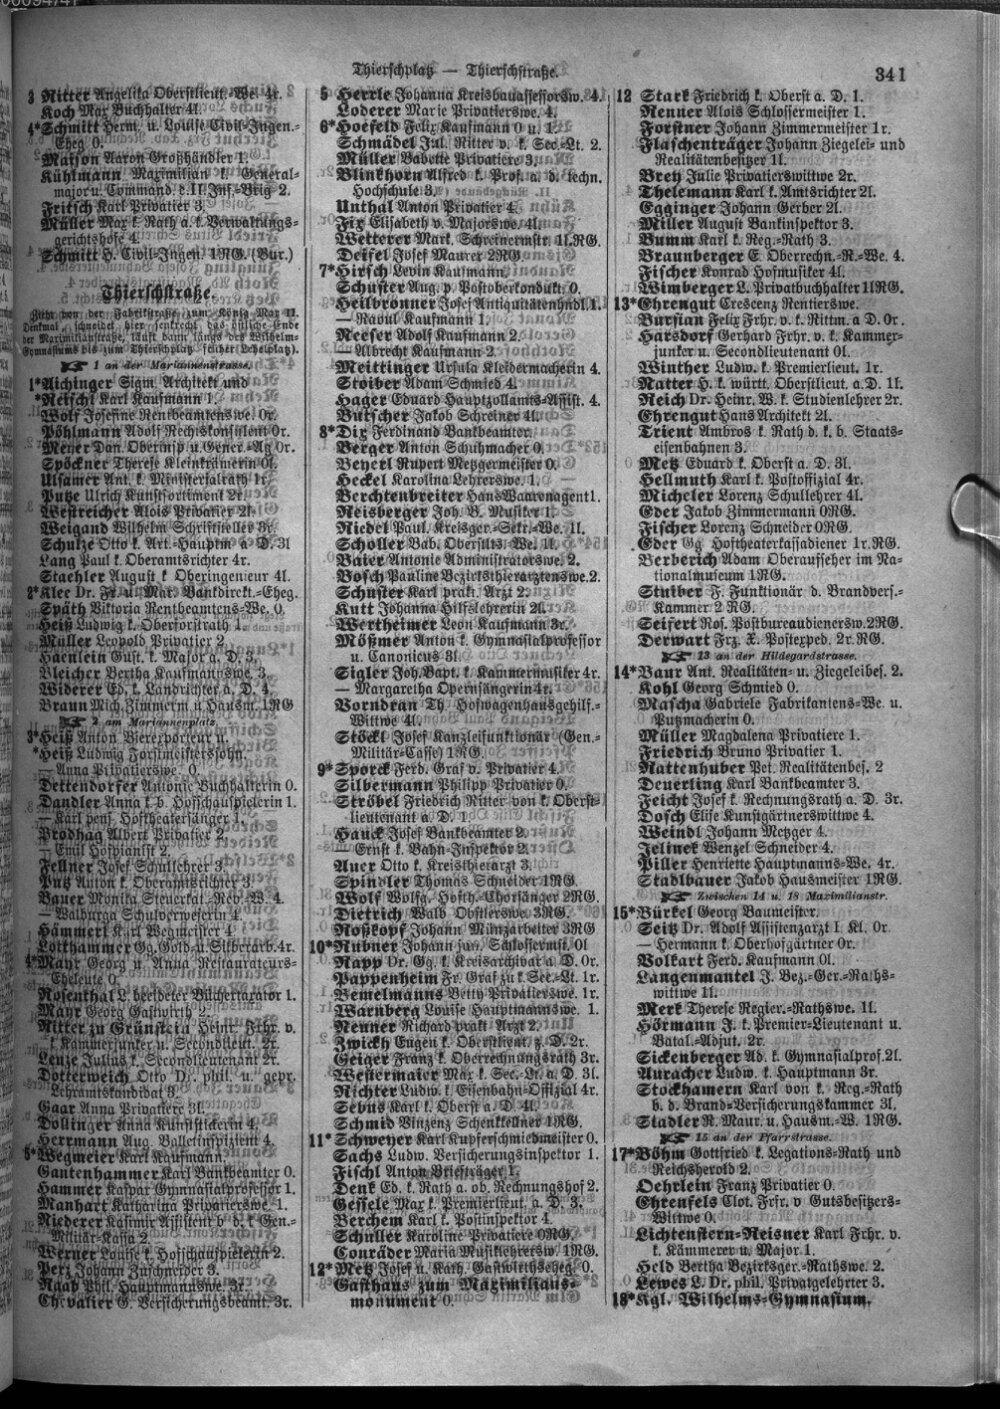 Thierschplatz — Thierschstraße.
341
3 Ritter Angelika Oberstlieut.-We. 4r.
Koch Max Buchhalter 4l.
4*Schmitt Herm. u. Louise Civil-Ingen.-
Eheg. 0.
Maison Aaron Großhändler 1.
Kühlmann Maximilian k. General-
major u. Command. d. II. Inf.-Brig 2.
Fritsch Karl Privatier 3.
Müller Max k. Rath a. k. Verwaltungs-
gerichtshofe 4.
Schmitt H. Civil-Ingen. 1RG. (Bur.)
Thierschstraße.
Zieht von der Fabrikstraße zum König Max II.
Denkmal, schneidet hier senkrecht das östliche Ende
der Maximilianstraße, läuft dann längs des Wilhelm-
Gymnasiums bis zum Thierschplatz (früher Lehelplatz).
1 an der Mariannenstrasse.
1*Aichinger Sigm. Architekt und
*Reischl Karl Kaufmann 1.
Wolf Josefine Rentbeamtenswe. 0r.
Pöhlmann Adolf Rechtskonsulent 0r.
Meyer Dan. Oberinsp. u. Gener.-Ag 0r.
Spöckner Therese Kleinkrämerin 0l.
Ulsamer Ant. k. Ministerialrath 1r.
Putze Ulrich Kunstsortiment 2r.
Westreicher Alois Privatier 2l.
Weigand Wilhelm Schriftsteller 3r.
Schulze Otto k. Art.-Hauptm. a. D. 3l
Lang Paul k. Oberamtsrichter 4r.
Staehler August k. Oberingenieur 4l.
2*Klee Dr. Fr. u. Mar. Bankdirekt.-Eheg.
Späth Viktoria Rentbeamtens-We. 0.
Heiß Ludwig k. Oberforstrath 1.
Müller Leopold Privatier 2.
Haenlein Gust. k. Major a. D. 3.
Bleicher Bertha Kaufmannswe. 3.
Widerer Ed. k. Landrichter a. D. 4.
Braun Mich. Zimmerm. u. Hausm. 1RG
2 am Mariannenplatz.
3*Heiß Anton Bierexporteur u.
*Heiß Ludwig Forstmeisterssohn.
— Anna Privatierswe. 0.
Dettendorfer Antonie Buchhalterin 0.
Dandler Anna k. b. Hofschauspielerin 1.
— Karl pens. Hoftheatersänger 1.
Brodhag Albert Privatier 2.
— Emil Hofpianist 2.
Fellner Josef Schullehrer 3.
Putz Anton k. Oberamtsrichter 3.
Bauer Monika Steuerkat.-Rev.-W. 4.
— Walburga Schulverweserin 4.
Hämmerl Karl Wegmeister 4.
Lotthammer Gg. Gold- u. Silberarb. 4r.
4*Mayr Georg u. Anna Restaurateurs-
Eheleute 0.
Rosenthal L. beeideter Büchertaxator 1.
Mayr Georg Gastwirth 2.
Ritter zu Grünstein Heinr. Frhr. v.
k. Kammerjunker u. Secondlieut. 2r.
Leuze Julius k. Secondlieutenant 2r.
Dotterweich Otto Dr. phil. u. gepr.
Lehramtskandidat 3.
Gaar Anna Privatiere 3l.
Dollinger Anna Kunststickerin 4.
Herrmann Aug. Balletinspizient 4.
5*Wegmeier Karl Kaufmann.
Gantenhammer Karl Bankbeamter 0.
Hammer Kaspar Gymnasialprofessor 1.
Manhart Katharina Privatierswe. 1.
Niederer Kasimir Assistent b. d. k. Gen.-
Militär-Kassa 2.
Werner Louise k. Hofschauspielerin 2.
Perz Johann Zuschneider 3.
Raab Phil. Hauptmannswe. 3r.
Chevalier G. Versicherungsbeamt. 3r.
5 Herrle Johanna Kreisbauassessorsw. 4.
Loderer Marie Privatierswe. 4.
6*Hoefeld Felix Kaufmann 0 u. 1.
Schmädel Jul. Ritter v. k. Sec.-Lt. 2.
Müller Babette Privatiere 3.
Blinkhorn Alfred k. Prof. a. d. techn.
Hochschule 3.
Unthal Anton Privatier 4.
Fix Elisabeth v. Majorswe. 4l.
Wetterer Mark. Schreinermstr. 1l.RG.
Deisel Josef Maurer 2RG
7*Hirsch Levin Kaufmann.
Schuster Aug. p. Postoberkondukt. 0.
Heilbronner Josef Antiquitätenhndl. 1.
— Raoul Kaufmann 1.
Neeser Adolf Kaufmann 2.
— Albrecht Kaufmann 2.
Meittinger Ursula Kleidermacherin 4.
Stoiber Adam Schmied 4.
Hager Eduard Hauptzollamts-Assist. 4.
Butscher Jakob Schreiner 4l.
8*Dix Ferdinand Bankbeamter.
Berger Anton Schuhmacher 0.
Beyerl Rupert Metzgermeister 0.
Heckel Karolina Lehrerswe. 1.
Berchtenbreiter Hans Waarenagent 1.
Reisberger Joh. B. Musiker 1.
Riedel Paul. Kreisger.-Sekr.-We. 1l.
Scholler Bab. Oberstlts. We. 1l.
Baier Antonie Administratorswe. 2.
Bosch Pauline Bezirksthierarztenswe. 2.
Schuster Karl prakt. Arzt 2.
Kutt Johanna Hilfslehrerin 2l.
Wertheimer Leon Kaufmann 3r.
Mößmer Anton k. Gymnasialprofessor
u. Canonicus 3l.
Sigler Joh. Bapt. k. Kammermusiker 4r.
— Margaretha Opernsängerin 4r.
Vorndran Th. Hofwagenhausgehilf.-
Wittwe 4l.
Stöckl Josef Kanzleifunktionär (Gen.-
Militär-Casse) 1RG.
9*Sporck Ferd. Graf v. Privatier 4.
Silbermann Philipp Privatier 0.
Ströbel Friedrich Ritter von k. Oberst-
lieutenant a. D. 1.
Hauck Josef Bankbeamter 2.
— Ernst k. Bahn-Inspektor 2.
Auer Otto k. Kreisthierarzt 3.
Spindler Thomas Schneider 1RG.
Wolf Wolfg. Hofth.-Chorsänger 2RG.
Dietrich Walb. Obstlerswe. 3RG.
Roßkopf Johann Münzarbeiter 3RG
10*Rubner Johann jun. Schlossermst. 0l
Rapp Dr. Gg. k. Kreisarchivar a. D. 0r.
Pappenheim Fr. Graf zu k. Sec.-Lt. 1r.
Bemelmanns Betty Privatierswe. 1r.
Warnberg Louise Hauptmannswe. 1.
Renner Richard prakt. Arzt 2.
Zwickh Eugen k. Oberstlieut. z. D. 2r.
Geiger Franz k. Oberrechnungsrath 3r.
Westermaier Max k. Sec.-Lt. a. D. 3l.
Richter Ludw. k. Eisenbahn-Offizial 4r.
Sebus Karl k. Oberst a. D. 4l.
Schmid Vinzenz Schenkkellner 1RG.
11*Schweyer Karl Kupferschmiedmeister 0.
Sachs Ludw. Versicherungsinspektor 1.
Fischl Anton Briefträger 1.
Denk Ed. k. Rath a. ob. Rechnungshof 2.
Gessele Max k. Premierlieut. a. D. 3.
Berchem Karl k. Postinspektor 4.
Schuller Karoline Privatiere 0RG.
Conräder Maria Musiklehrersw. 1RG.
12*Metz Josef u. Kath. Gastwirthseheg. 0.
Gasthaus zum Maximilians-
monument 0.
12 Stark Friedrich k. Oberst a. D. 1.
Renner Alois Schlossermeister 1.
Forstner Johann Zimmermeister 1r.
Flaschenträger Johann Ziegelei- und
Realitätenbesitzer 1l.
Bretz Julie Privatierswittwe 2r.
Thelemann Karl k. Amtsrichter 2l.
Egginger Johann Gerber 2l.
Miller August Bankinspektor 3.
Bumm Karl k. Reg.-Rath 3.
Braunberger E. Oberrechn.-R.-We. 4.
Fischer Konrad Hofmusiker 4l.
Wimberger L. Privatbuchhalter 1lRG.
13*Ehrengut Crescenz Rentierswe.
Bursian Felix Frhr. v. k. Rittm. a. D. 0r.
Harsdorf Gerhard Frhr. v. k. Kammer-
junker u. Secondlieutenant 0l.
Winther Ludw. k. Premierlieut. 1r.
Natter H. k. württ. Oberstlieut. a. D. 1l.
Reich Dr. Heinr. W. k. Studienlehrer 2r.
Ehrengut Hans Architekt 2l.
Trient Ambros k. Rath d. k. b. Staats-
eisenbahnen 3.
Metz Eduard k. Oberst a. D. 3l.
Hellmuth Karl k. Postoffizial 4r.
Micheler Lorenz Schullehrer 4l.
Eder Jakob Zimmermann 0RG.
Fischer Lorenz Schneider 0RG.
Eder Gg. Hoftheaterkassadiener 1r.RG.
Berberich Adam Oberaufseher im Na-
tionalmuseum 1RG.
Stuiber F. Funktionär d. Brandvers.-
Kammer 2 RG.
Seifert Ros. Postbureaudienersw. 2RG.
Derwart Frz. X. Postexped. 2r.RG.
13 an der Hildegardstrasse.
14*Baur Ant. Realitäten- u. Ziegeleibes. 2.
Kohl Georg Schmied 0.
Mascha Gabriele Fabrikantens-We. u.
Putzmacherin 0.
Müller Magdalena Privatiere 1.
Friedrich Bruno Privatier 1.
Rattenhuber Pet. Realitätenbes. 2
Deuerling Karl Bankbeamter 3.
Feicht Josef k. Rechnungsrath a. D. 3r.
Dosch Elise Kunstgärtnerswittwe 4.
Weindl Johann Metzger 4.
Jelinek Wenzel Schneider 4.
Piller Henriette Hauptmanns-We. 4r.
Stadlbauer Jakob Hausmeister 1RG.
Zwischen 14 u. 18 Maximilianstr.
15*Bürkel Georg Baumeister.
Seitz Dr. Adolf Assistenzarzt I. Kl. 0r.
— Hermann k. Oberhofgärtner 0r.
Volkart Ferd. Kaufmann 0l.
Langenmantel J. Bez.-Ger.-Raths-
wittwe 1l.
Merk Therese Regier.-Rathswe. 1l.
Hörmann J. k. Premier-Lieutenant u.
Batal.-Adjut. 2r.
Sickenberger Ad. k. Gymnasialprof. 2l.
Auracher Ludw. k. Hauptmann 3r.
Stockhamern Karl von k. Reg.-Rath
b. d. Brand-Versicherungskammer 3l.
Stadler R. Maur. u. Hausm.-W. 1RG.
15 an der Pfarrstrasse.
17*Böhm Gottfried k. Legations-Rath und
Reichsherold 2.
Oehrlein Franz Privatier 0.
Ehrenfels Clot. Frfr. v. Gutsbesitzers-
Wittwe 0.
Lichtenstern-Reisner Karl Frhr. v.
k. Kämmerer u. Major 1.
Held Bertha Bezirksger.-Rathswe. 2.
Lewes L. Dr. phil. Privatgelehrter 3.
18*Kgl. Wilhelms-Gymnasium.